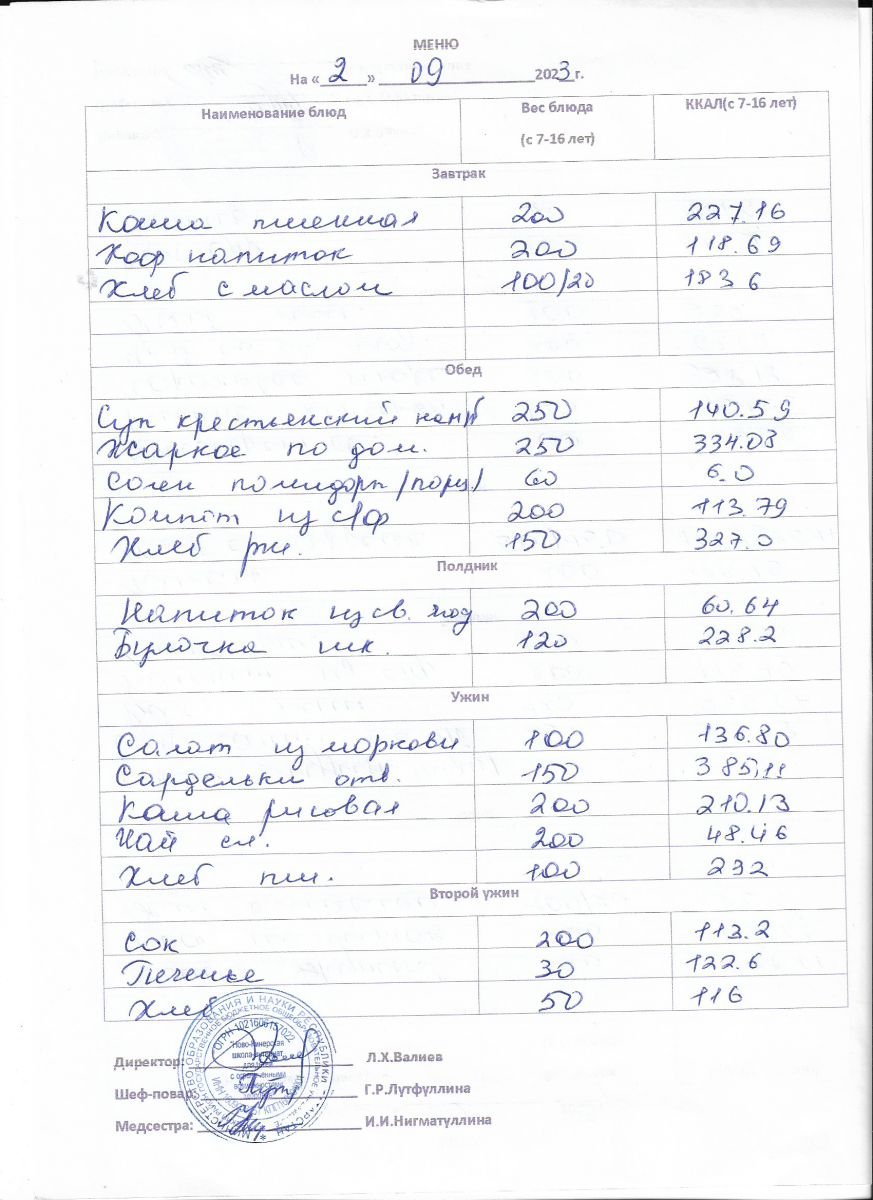 МЕНЮ
На « 2 » 09 2023 г.
Наименование блюд Вес блюда (с 7-16 лет) ККАЛ(с 7-16 лет)
Завтрак
Каша пшенная 200 227.16
Коф напиток 200 118.69
Хлеб с маслом 100/20 183 6
Обед
Суп крестьянский 250 140.59
Жаркое по дом. 250 334.03
Солен помидоры /порц/ 60 6.0
Компот из с/ф 200 113.79
Хлеб рж. 150 327.0
Полдник
Напиток из св. ягод 200 60.64
Булочка шк. 120 228.2
Ужин
Салат из моркови 100 136.80
Сардельки отв. 150 385,11
Каша рисовая 200 210.13
Чай сл. 200 48.46
Хлеб пш. 100 232
Второй ужин
Сок 200 113.2
Печенье 30 122.6
Хлеб 50 116
Директор: Л.Х.Валиев
Шеф-повар: Г.Р.Лутфуллина
Медсестра: И.И.Нигматуллина
ОГРН 1021606757022
"Ново-Кинерская
школа-интернат